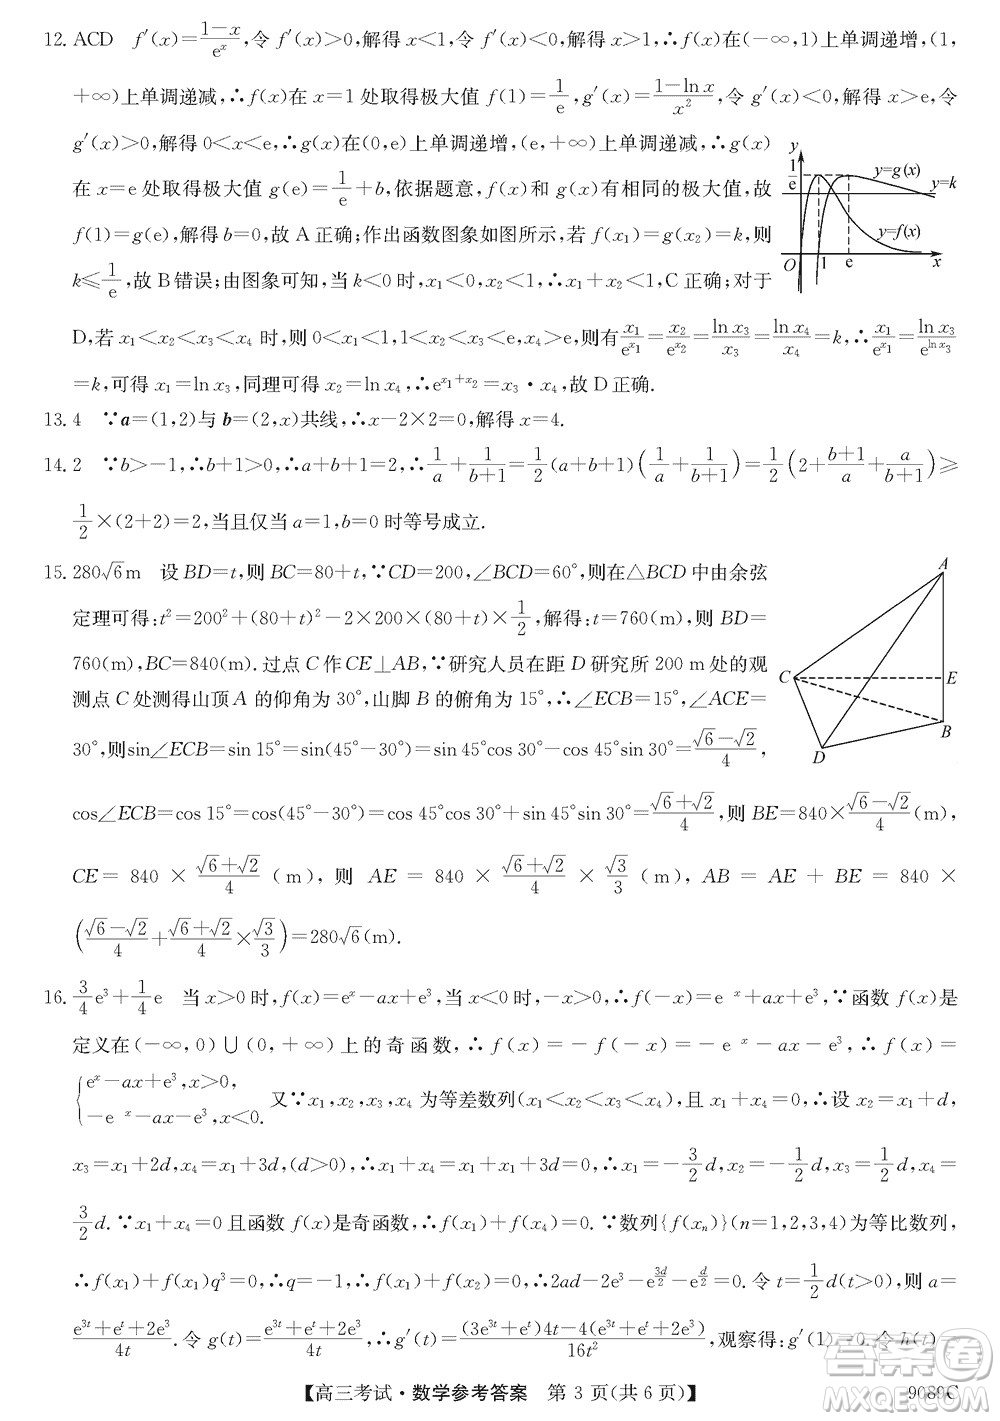 12. ACD f′(x)=\frac{1-x}{e^x},令 f′(x)>0,解得 x<1,令 f′(x)<0,解得 x>1,∴f(x)在(-∞,1)上单调递增,(1,
+∞)上单调递减,∴f(x)在 x=1 处取得极大值 f(1)=\frac{1}{e},g′(x)=\frac{1-ln x}{x^2},令 g′(x)<0,解得 x>e,令
g′(x)>0,解得 0<x<e,∴g(x)在(0,e)上单调递增,(e,+∞)上单调递减,∴g(x)
在 x=e 处取得极大值 g(e)=\frac{1}{e}+b,依据题意,f(x)和 g(x)有相同的极大值,故
f(1)=g(e),解得 b=0,故 A 正确;作出函数图象如图所示,若 f(x_1)=g(x_2)=k,则
k≤\frac{1}{e},故 B 错误;由图象可知,当 k<0 时,x_1<0,x_2<1,∴x_1+x_2<1,C 正确;对于
y
\frac{1}{e}
y=g(x)
y=k
y=f(x)
O 1 e x
D,若 x_1<x_2<x_3<x_4 时,则 0<x_1<1,1<x_2<x_3<e,则有\frac{x_1}{e^{x_1}}=\frac{x_2}{e^{x_2}}=\frac{ln x_3}{x_3}=\frac{ln x_4}{x_4}=k,∴\frac{x_1}{e^{x_1}}=\frac{ln x_3}{e^{ln x_3}}
=k,可得 x_1=ln x_3,同理可得 x_2=ln x_4,∴e^{x_1+x_2}=x_3·x_4,故 D 正确.
13. 4 ∵a=(1,2)与 b=(2,x)共线,∴x-2×2=0,解得 x=4.
14. 2 ∵b>-1,∴b+1>0,∴a+b+1=2,∴\frac{1}{a}+\frac{1}{b+1}=\frac{1}{2}(a+b+1)(\frac{1}{a}+\frac{1}{b+1})=\frac{1}{2}(2+\frac{b+1}{a}+\frac{a}{b+1})≥
\frac{1}{2}×(2+2)=2,当且仅当 a=1,b=0 时等号成立.
15. 280√6 m 设 BD=t,则 BC=80+t,∵CD=200,∠BCD=60°,则在△BCD 中由余弦
定理可得:t^2=200^2+(80+t)^2-2×200×(80+t)×\frac{1}{2},解得:t=760(m),则 BD=
760(m),BC=840(m).过点 C 作 CE⊥AB,∵研究人员在距 D 研究所 200 m 处的观
测点 C 处测得山顶 A 的仰角为 30°,山脚 B 的俯角为 15°,∴∠ECB=15°,∠ACE=
30°,则sin∠ECB=sin 15°=sin(45°-30°)=sin 45°cos 30°-cos 45°sin 30°=\frac{√6-√2}{4},
A
C
E
B
D
cos∠ECB=cos 15°=cos(45°-30°)=cos 45°cos 30°+sin 45°sin 30°=\frac{√6+√2}{4},则 BE=840×\frac{√6-√2}{4}(m),
CE= 840 × \frac{√6+√2}{4} (m), 则 AE = 840 × \frac{√6+√2}{4} × \frac{√3}{3} (m), AB = AE + BE = 840 ×
(\frac{√6-√2}{4}+\frac{√6+√2}{4}×\frac{√3}{3})=280√6(m).
16. \frac{3}{4}e^3+\frac{1}{4}e 当 x>0 时,f(x)=e^x-ax+e^3,当 x<0 时,-x>0,∴f(-x)=e^{-x}+ax+e^3,∵函数 f(x)是
定义在(-∞,0)∪(0,+∞)上的奇函数,∴f(x)=-f(-x)=-e^{-x}-ax-e^3,∴f(x)=
{e^x-ax+e^3,x>0, -e^{-x}-ax-e^3,x<0. 又∵x_1,x_2,x_3,x_4 为等差数列(x_1<x_2<x_3<x_4),且 x_1+x_4=0,∴设 x_2=x_1+d,
x_3=x_1+2d,x_4=x_1+3d,(d>0)∴x_1+x_4=x_1+x_1+3d=0,∴x_1=-\frac{3}{2}d,x_2=-\frac{1}{2}d,x_3=\frac{1}{2}d,x_4=
\frac{3}{2}d.∵x_1+x_4=0 且函数 f(x)是奇函数,∴f(x_1)+f(x_4)=0.∵数列{f(x_n)}(n=1,2,3,4)为等比数列,
∴f(x_1)+f(x_1)q^3=0,∴q=-1,∴f(x_3)+f(x_4)=0,∴2ad-2e^3-e^{\frac{3d}{2}}-e^{\frac{d}{2}}=0.令 t=\frac{1}{2}d(t>0),则 a=
\frac{e^{3t}+e^t+2e^3}{4t}.令 g(t)=\frac{e^{3t}+e^t+2e^3}{4t},∴g′(t)=\frac{(3e^{3t}+e^t)4t-4(e^{3t}+e^t+2e^3)}{16t^2},观察得:g′(1)=0.令 h(t)
【高三考试·数学参考答案 第 3 页(共 6 页)】 9089C
答案圈
MXQE.COM